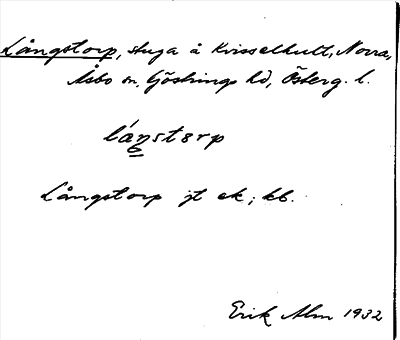 Långstorp, stuga å Kvisselhult, Norra,
Åsbo sn, Göstrings hd, Österg. l.
lǻŋstɔrp
Långstorp jt ek; kb.
Erik Alm 1932